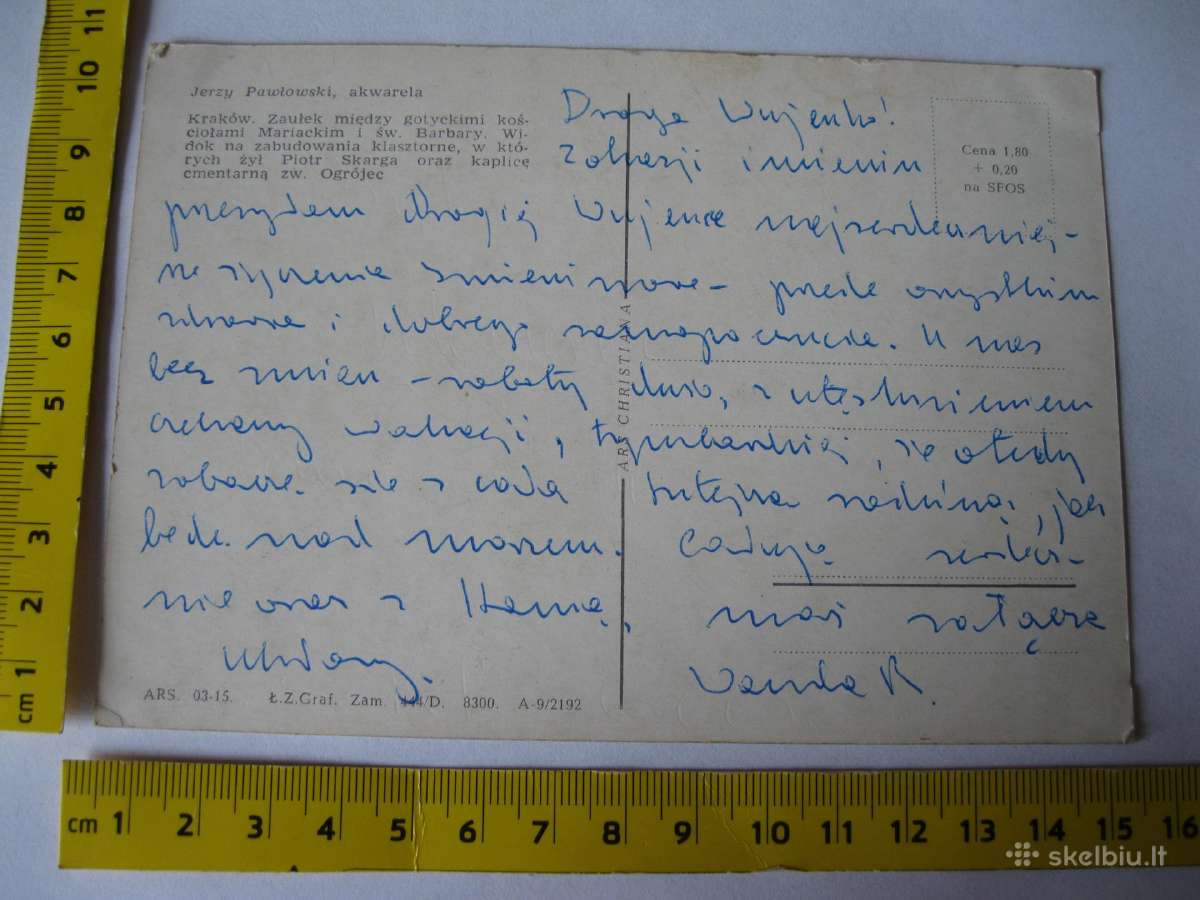 Jerzy Pawłowski, akwarela
Kraków. Zaułek między gotyckimi koś-
ciołami Mariackim i św. Barbary. Wi-
dok na zabudowania klasztorne, w któ-
rych żył Piotr Skarga oraz kaplicę
cmentarną zw. Ogrójec
Cena 1,80
+ 0,20
na SFOS
Droga Wujenko!
Z okazji imienin
przesyłam drogiej Wujence najserdeczniej-
sze życzenia imieninowe – przede wszystkim
zdrowia i dobrego samopoczucia. U nas
bez zmian – roboty dużo, z utęsknieniem
czekamy wakacji, tymbardziej, że wtedy
zobaczę się z całą tutejszą rodziną, jak
będę nad morzem. Całuję serdecz-
nie oraz z Hanią,
Wanda R
ARS CHRISTIANA
ARS. 03-15. Ł.Z.Graf. Zam. 444/D. 8300. A-9/2192
cm 1 2 3 4 5 6 7 8 9 10 11
cm 1 2 3 4 5 6 7 8 9 10 11 12 13 14 15 16
skelbiu.lt